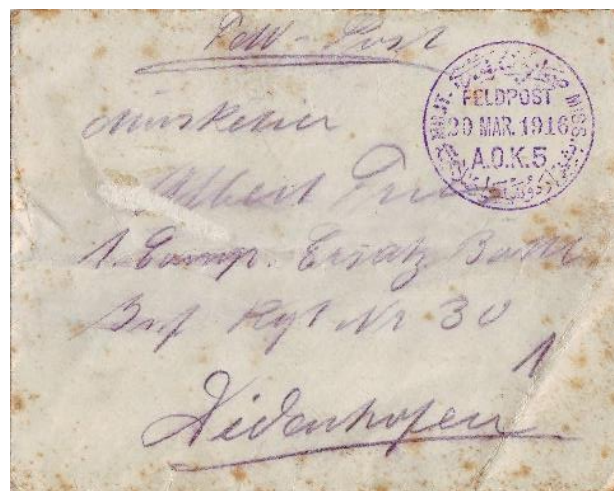 Feld-Post
MILIT. MISS.
FELDPOST
20 MAR. 1916
A.O.K.5
Musketier
Albert
1. Comp. Ersatz Batl.
Inf Rgt Nr 30
1
Didenhofen